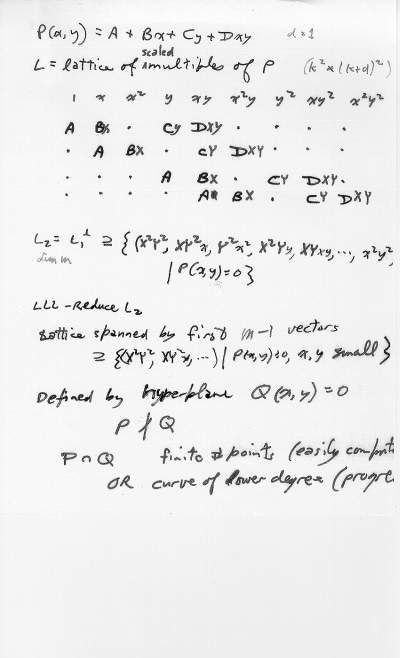 P(x,y) = A + Bx + Cy + Dxy d=1
scaled
L = lattice of multiples of P (k² × (k+d)²)
1 x x² y xy x²y y² xy² x²y²
A BX · CY DXY · · · ·
· A BX · CY DXY · · ·
· · · A BX · CY DXY ·
· · · · A BX · CY DXY
L₂ = L₁^⊥ ⊇ {(X²Y², XY²x, Y²x², X²Yy, XYxy, ..., x²y²,
dim m
| P(x,y)=0}
LLL-Reduce L₂
Lattice spanned by first m-1 vectors
⊇ {(X²Y², XY²x, ...) | P(x,y)=0, x,y small}
Defined by hyperplane Q(x,y) = 0
P ∤ Q
P ∩ Q finite # points (easily
OR curve of lower degree